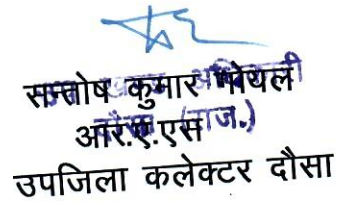 सन्तोष कुमार गोयल
आर.ए.एस
(राज.)
उपजिला कलेक्टर दौसा